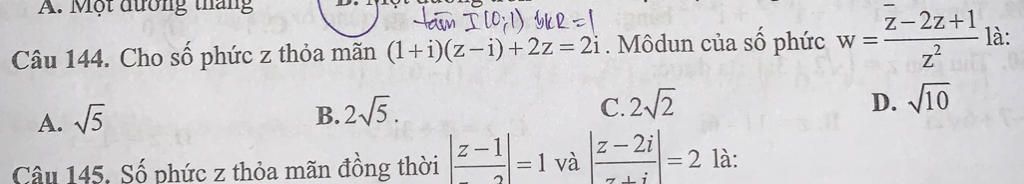 A. Một đường thẳng
tâm I(0;1) bk R=1
Câu 144. Cho số phức z thỏa mãn (1+i)(z−i)+2z=2i. Môdun của số phức w = (z̄−2z+1)/z² là:
A. √5 B. 2√5. C. 2√2 D. √10
Câu 145. Số phức z thỏa mãn đồng thời |z−1 = 1 và |(z−2i)/(z+i)| = 2 là: